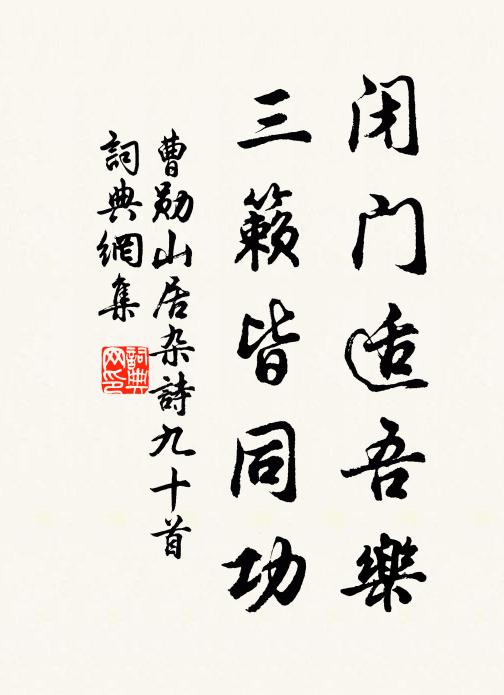 闭门适吾樂
三籟皆同功
曹勋山居杂詩九十首
詞典網集
詞典网印